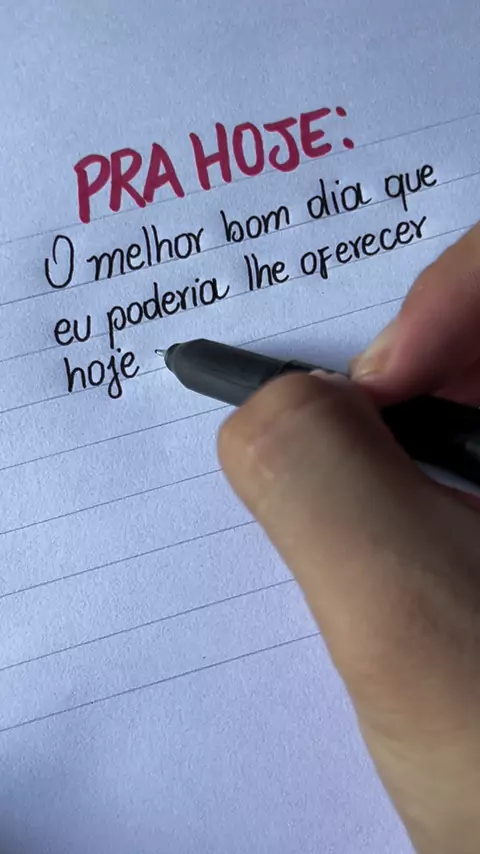 PRA HOJE:
O melhor bom dia que
eu poderia lhe oferecer
hoje